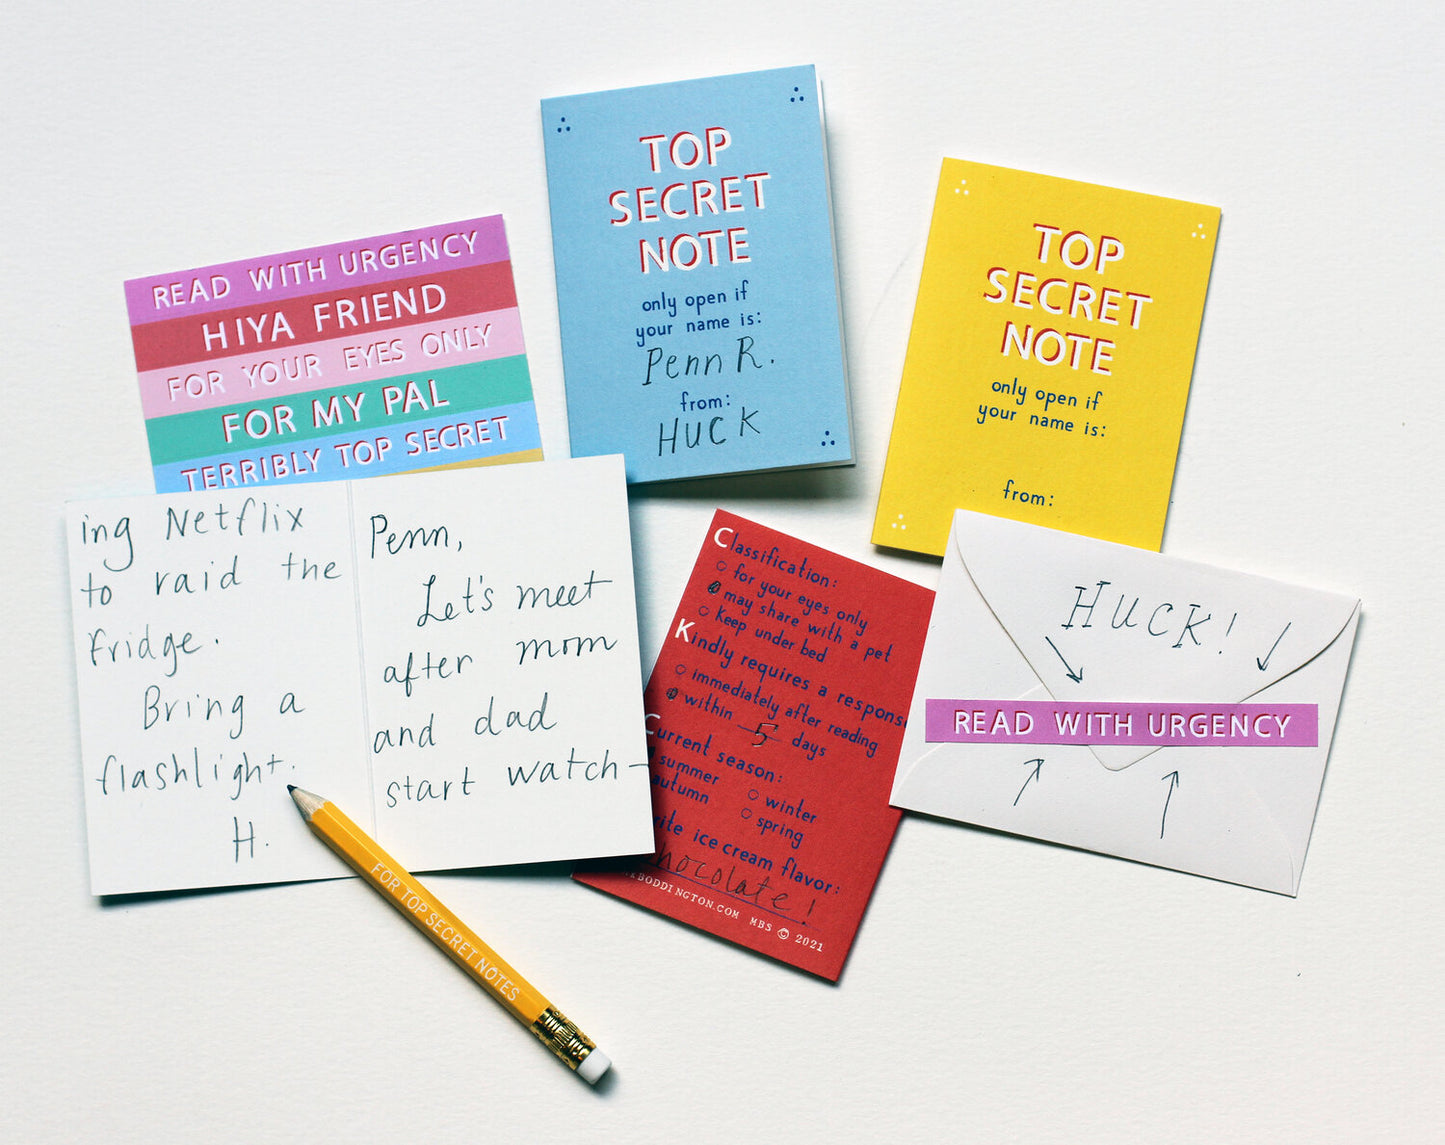 TOP
SECRET
NOTE
only open if
your name is:
Penn R.
from:
HUCK
TOP
SECRET
NOTE
only open if
your name is:
from:
READ WITH URGENCY
HIYA FRIEND
FOR YOUR EYES ONLY
FOR MY PAL
TERRIBLY TOP SECRET
ing Netflix
to raid the
fridge.
Bring a
flashlight.
H.
Penn,
Let's meet
after mom
and dad
start watch-
FOR TOP SECRET NOTES
Classification:
for your eyes only
may share with a pet
Keep under bed
Kindly requires a respons
immediately after reading
within 5 days
Current season:
summer
winter
autumn
spring
ice cream flavor:
hocolate!
BODDINGTON.COM MBS © 2021
HUCK!
READ WITH URGENCY